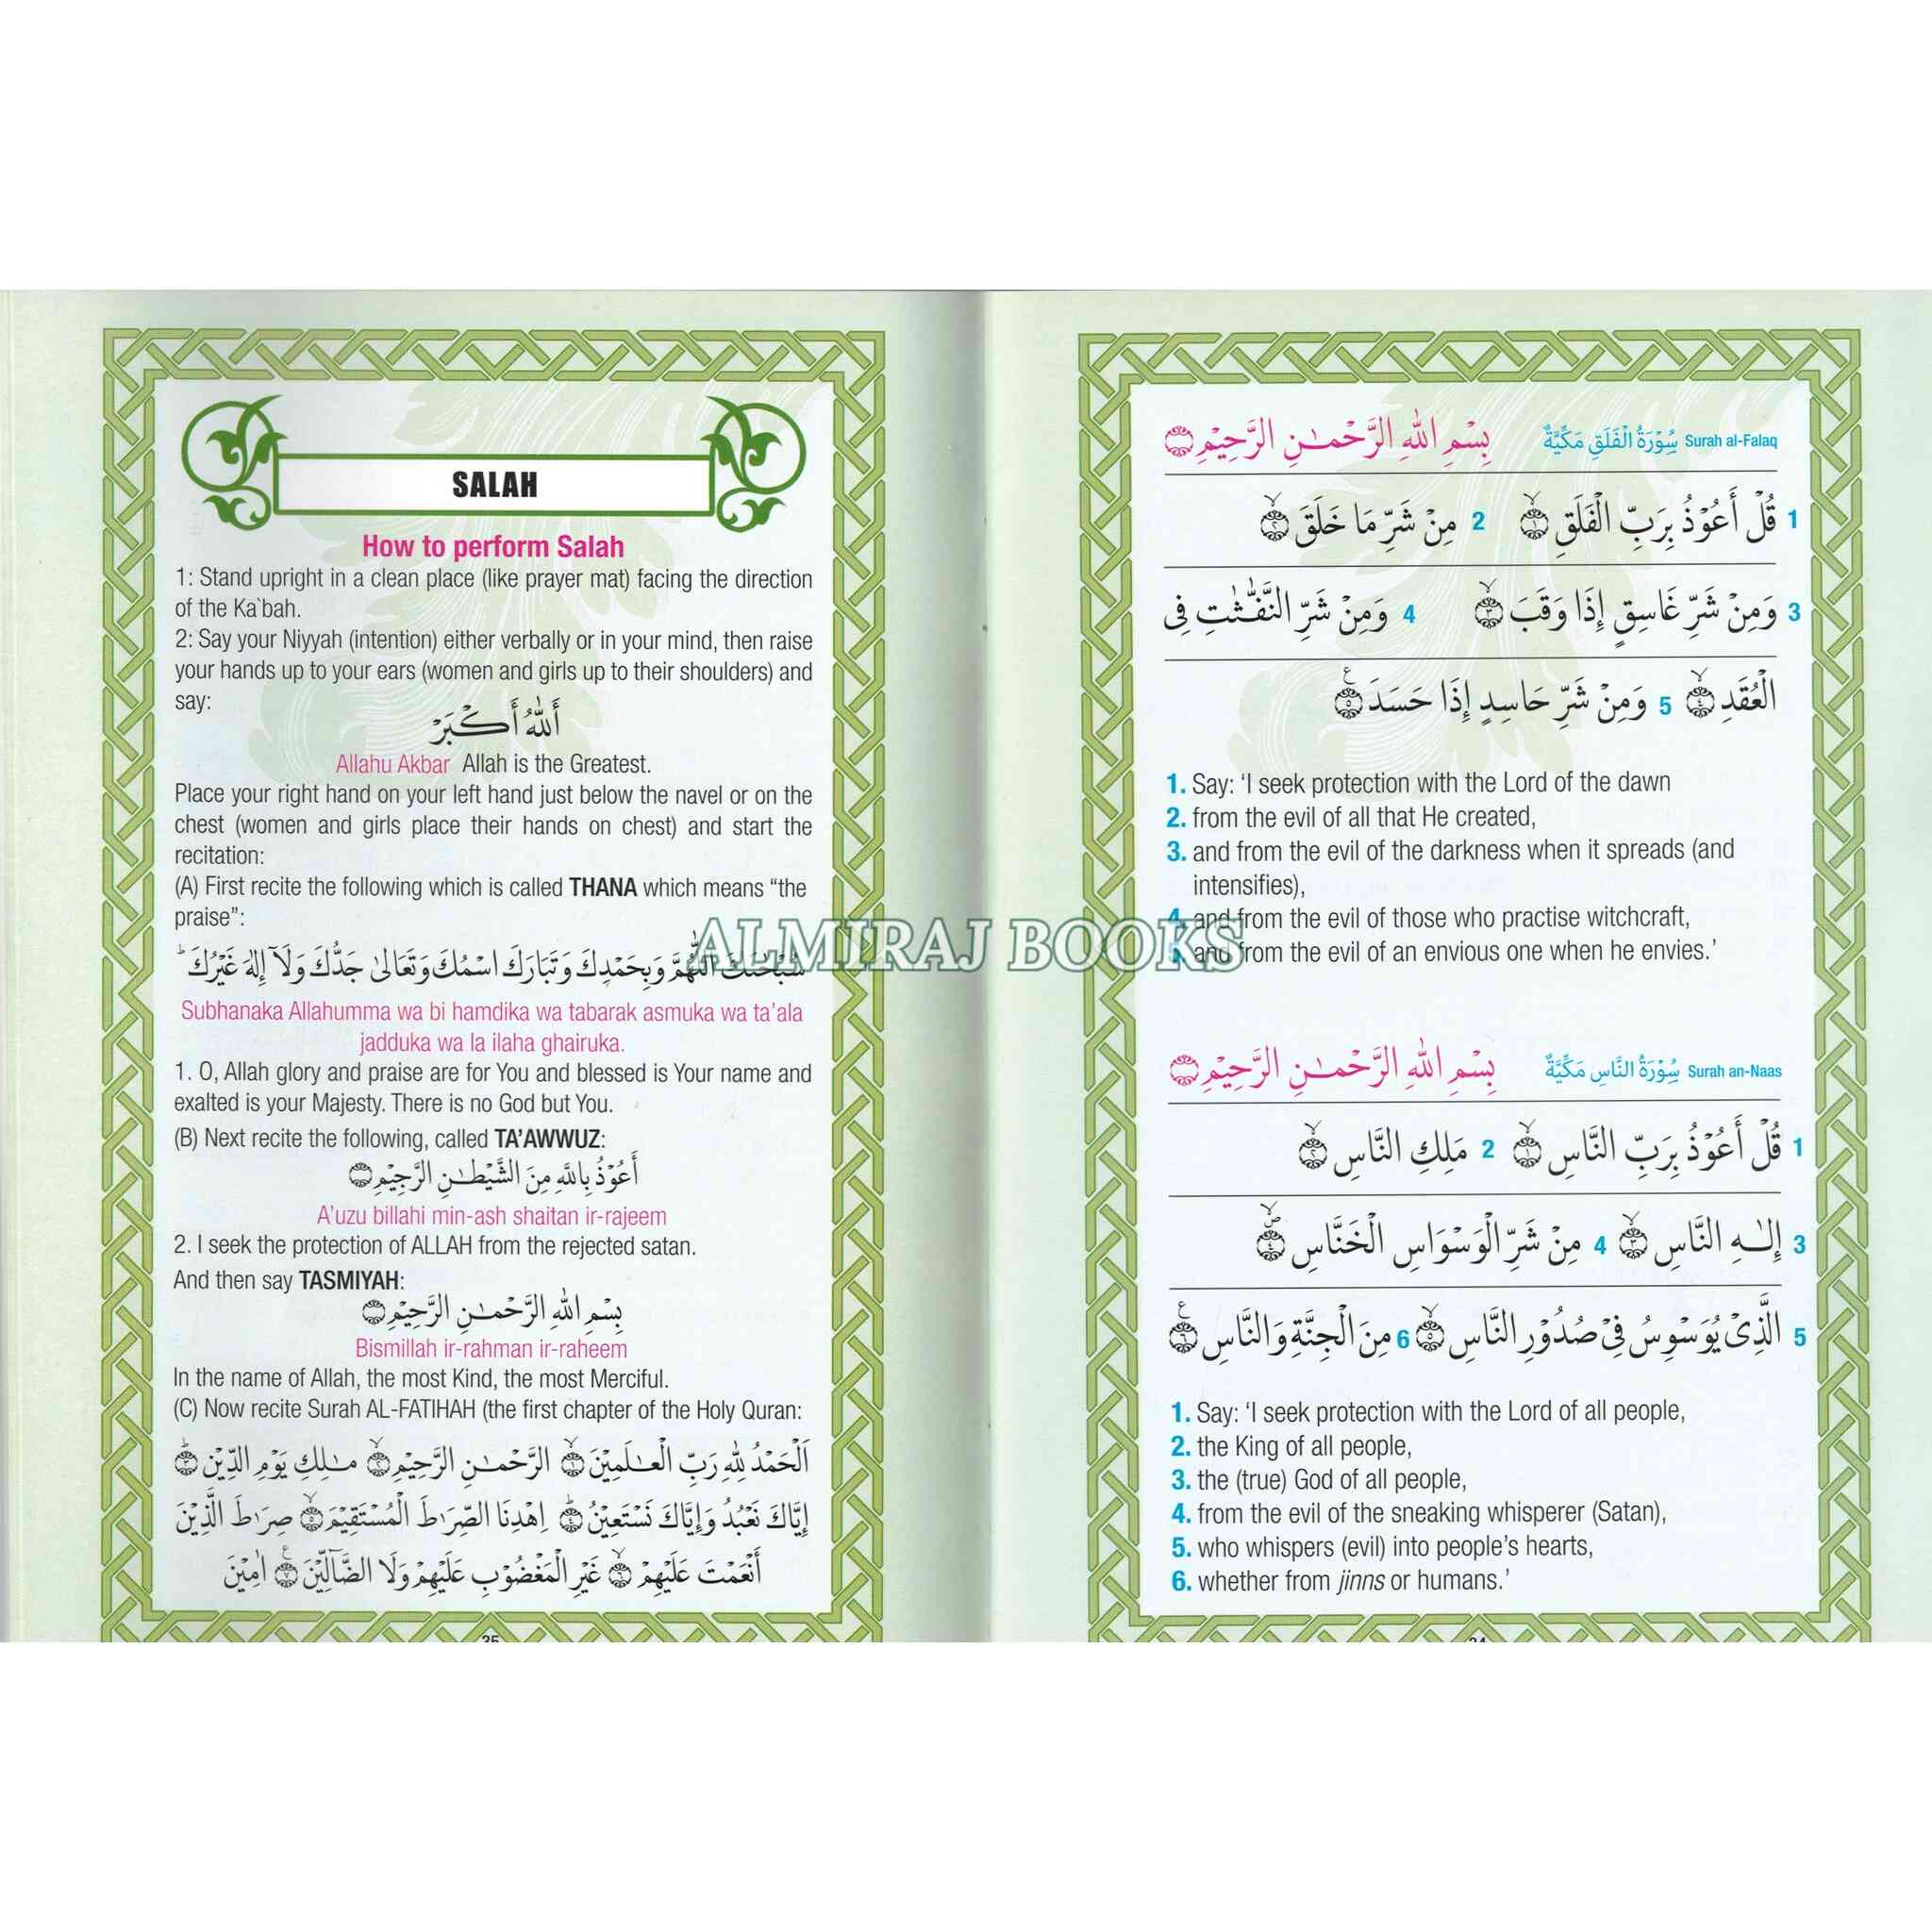 بِسْمِ اللهِ الرَّحْمٰنِ الرَّحِيْمِ سُوْرَةُ الْفَلَقِ مَكِّيَّةٌ Surah al-Falaq
1 قُلْ أَعُوْذُ بِرَبِّ الْفَلَقِ ۝١ 2 مِنْ شَرِّ مَا خَلَقَ ۝٢
3 وَمِنْ شَرِّ غَاسِقٍ إِذَا وَقَبَ ۝٣ 4 وَمِنْ شَرِّ النَّفّٰثٰتِ فِى
الْعُقَدِ ۝٤ 5 وَمِنْ شَرِّ حَاسِدٍ إِذَا حَسَدَ ۝٥
1. Say: ‘I seek protection with the Lord of the dawn
2. from the evil of all that He created,
3. and from the evil of the darkness when it spreads (and
intensifies),
4. and from the evil of those who practise witchcraft,
5. and from the evil of an envious one when he envies.’
بِسْمِ اللهِ الرَّحْمٰنِ الرَّحِيْمِ سُوْرَةُ النَّاسِ مَكِّيَّةٌ Surah an-Naas
1 قُلْ أَعُوْذُ بِرَبِّ النَّاسِ ۝١ 2 مَلِكِ النَّاسِ ۝٢
3 إِلٰهِ النَّاسِ ۝٣ 4 مِنْ شَرِّ الْوَسْوَاسِ الْخَنَّاسِ ۝٤
5 الَّذِىْ يُوَسْوِسُ فِىْ صُدُوْرِ النَّاسِ ۝٥ 6 مِنَ الْجِنَّةِ وَالنَّاسِ ۝٦
1. Say: ‘I seek protection with the Lord of all people,
2. the King of all people,
3. the (true) God of all people,
4. from the evil of the sneaking whisperer (Satan),
5. who whispers (evil) into people’s hearts,
6. whether from jinns or humans.’
SALAH
How to perform Salah
1: Stand upright in a clean place (like prayer mat) facing the direction
of the Ka`bah.
2: Say your Niyyah (intention) either verbally or in your mind, then raise
your hands up to your ears (women and girls up to their shoulders) and
say:
أَللهُ أَكْبَرْ
Allahu Akbar Allah is the Greatest.
Place your right hand on your left hand just below the navel or on the
chest (women and girls place their hands on chest) and start the
recitation:
(A) First recite the following which is called THANA which means “the
praise”:
سُبْحَانَكَ اللّٰهُمَّ وَبِحَمْدِكَ وَتَبَارَكَ اسْمُكَ وَتَعَالىٰ جَدُّكَ وَلَآ إِلٰهَ غَيْرُكَ
Subhanaka Allahumma wa bi hamdika wa tabarak asmuka wa ta’ala
jadduka wa la ilaha ghairuka.
1. O, Allah glory and praise are for You and blessed is Your name and
exalted is your Majesty. There is no God but You.
(B) Next recite the following, called TA’AWWUZ:
أَعُوْذُ بِاللَّهِ مِنَ الشَّيْطٰنِ الرَّجِيْمِ
A’uzu billahi min-ash shaitan ir-rajeem
2. I seek the protection of ALLAH from the rejected satan.
And then say TASMIYAH:
بِسْمِ اللهِ الرَّحْمٰنِ الرَّحِيْمِ
Bismillah ir-rahman ir-raheem
In the name of Allah, the most Kind, the most Merciful.
(C) Now recite Surah AL-FATIHAH (the first chapter of the Holy Quran:
اَلْحَمْدُ لِلّٰهِ رَبِّ الْعٰلَمِيْنَ ۝١ الرَّحْمٰنِ الرَّحِيْمِ ۝٢ مٰلِكِ يَوْمِ الدِّيْنِ ۝٣
إِيَّاكَ نَعْبُدُ وَإِيَّاكَ نَسْتَعِيْنُ ۝٤ اِهْدِنَا الصِّرَاطَ الْمُسْتَقِيْمَ ۝٥ صِرَاطَ الَّذِيْنَ
أَنْعَمْتَ عَلَيْهِمْ ۝٦ غَيْرِ الْمَغْضُوْبِ عَلَيْهِمْ وَلَا الضَّآلِّيْنَ ۝٧ اٰمِيْنَ
ALMIRAJ BOOKS